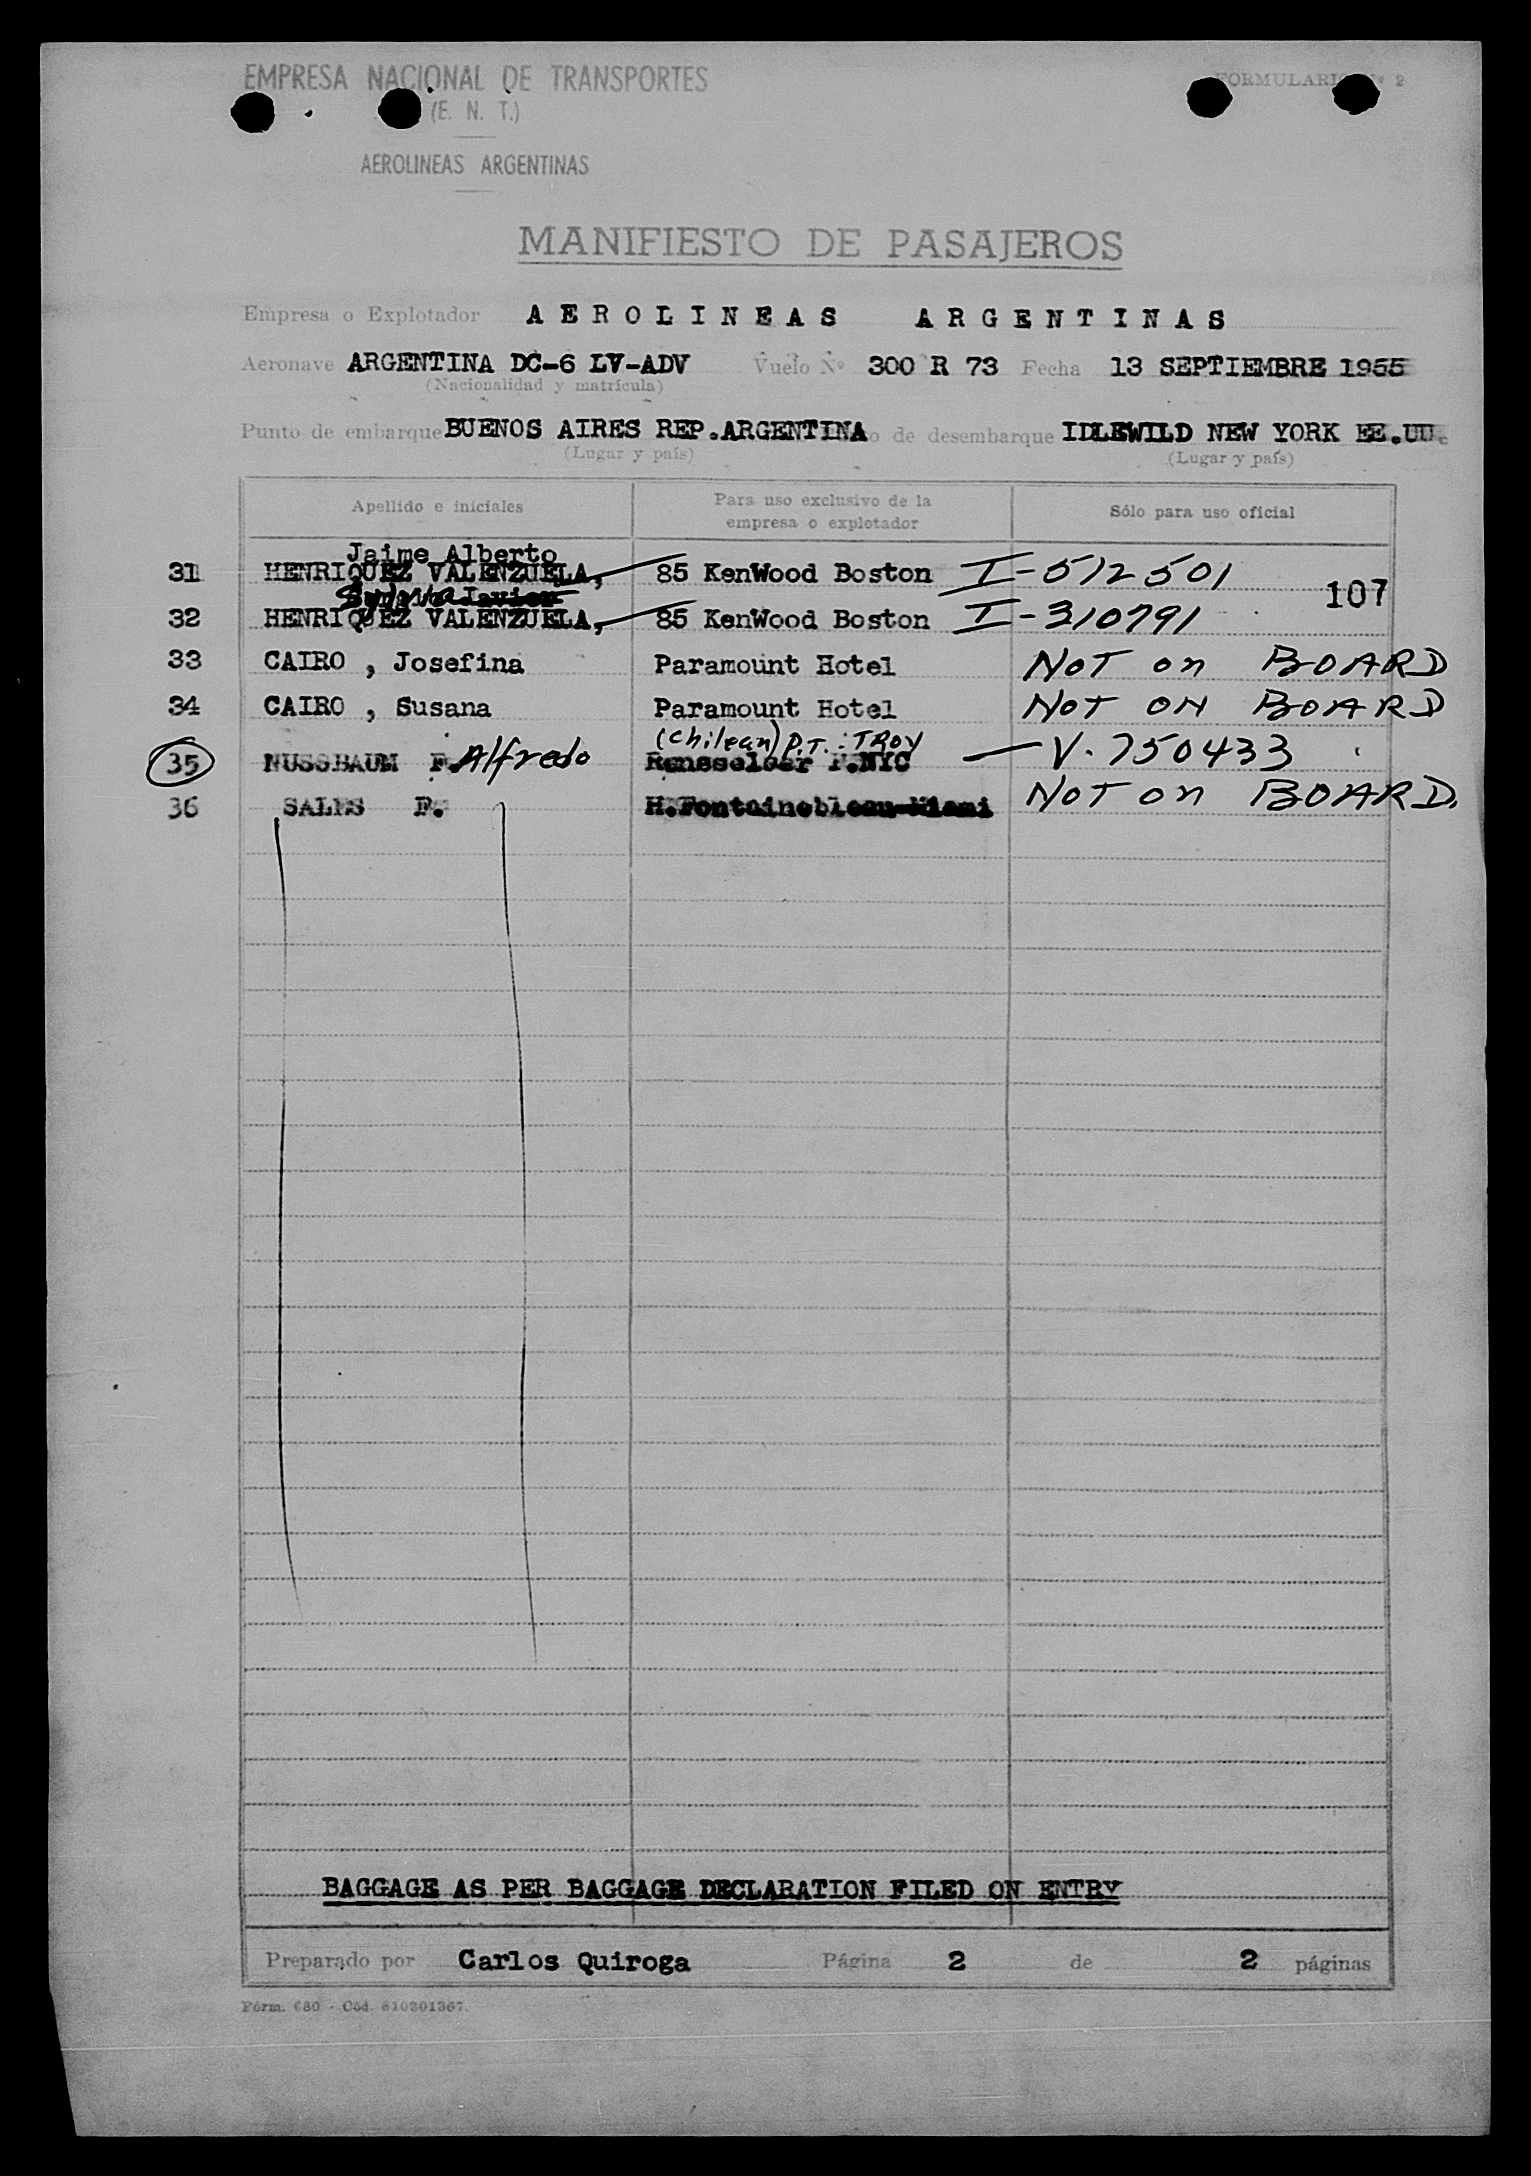 EMPRESA NACIONAL DE TRANSPORTES
(E. N. T.)
AEROLINEAS ARGENTINAS
FORMULARIO Nº 2
MANIFIESTO DE PASAJEROS
Empresa o Explotador AEROLINEAS ARGENTINAS
Aeronave ARGENTINA DC-6 LV-ADV Vuelo Nº 300 R 73 Fecha 13 SEPTIEMBRE 1955
(Nacionalidad y matrícula)
Punto de embarque BUENOS AIRES REP.ARGENTINA o de desembarque IDLEWILD NEW YORK EE.UU.
(Lugar y país) (Lugar y país)
Apellido e iniciales Para uso exclusivo de la empresa o explotador Sólo para uso oficial
Jaime Alberto
31 HENRIQUEZ VALENZUELA, 85 KenWood Boston I-512501
107
Javier
32 HENRIQUEZ VALENZUELA, 85 KenWood Boston I-310791
33 CAIRO , Josefina Paramount Hotel NOT on BOARD
34 CAIRO , Susana Paramount Hotel NOT ON BOARD
(Chilean) P.T. : TROY
35 NUSSBAUM F. Alfredo Rensseloer P.NYC - V. 750433
36 SALES F. H.Fontainebleau-Miami NOT on BOARD.
BAGGAGE AS PER BAGGAGE DECLARATION FILED ON ENTRY
Preparado por Carlos Quiroga Página 2 de 2 páginas
Fórm. 680 - Cód. 610201367.